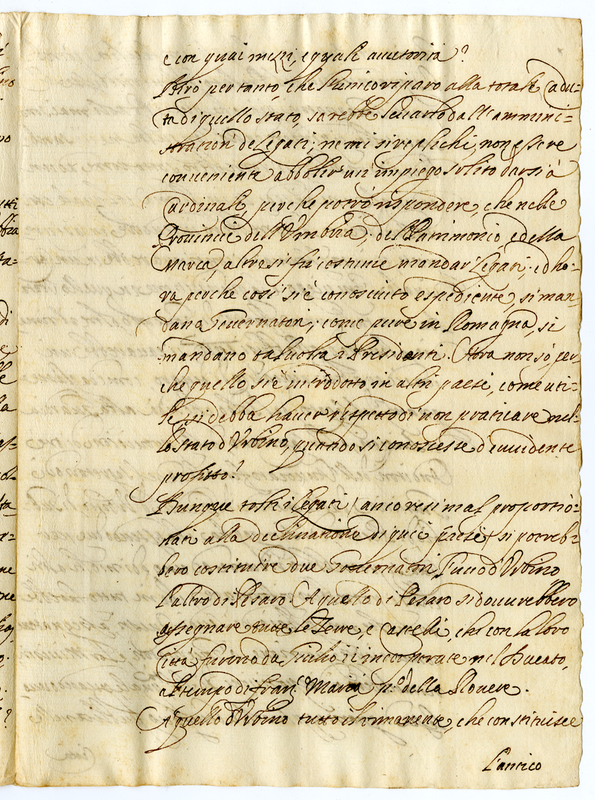 e con quai mezzi, e quale auttorità?
Dirò per tanto, che l'unico riparo alla totale cadu-
ta di quello stato, sarebbe levarlo dall'ammini-
stration de Legati; ne mi si replichi, non essere
conveniente abbolir un impiego solito darsi à
Cardinali, perche potrò rispondere, che nelle
Provincie dell'Umbria, del Patrimonio, e della
Marca, altresi fù costume mandar Legati, ed ho-
ra perche così si è conosciuto espediente, si man-
dano Governatori; come pure in Romagna, si
mandano tal volta i Presidenti. Hora non sò per
che quello si è introdotto in altri paesi, come uti-
le, si debba haver rispetto di non praticare nel-
lo Stato d'Urbino, quando si conoscesse d'evvidente
profitto?
Dunque tolti i Legati, ancoressi mal proportio-
nati alla declinatione di quei paesi, si potreb-
bero costituire due Governatori, l'uno d'Urbino
l'altro di Pesaro. A quello di Pesaro si dovrebbero
assegnare tutte le Terre, e Castelli, che con la loro
Città furono da Giulio ii incorporate nel Ducato,
al tempo di Fran. Maria p.o della Rovere.
A quello d'Urbino tutto il rimanente, che constituisce
l'antico